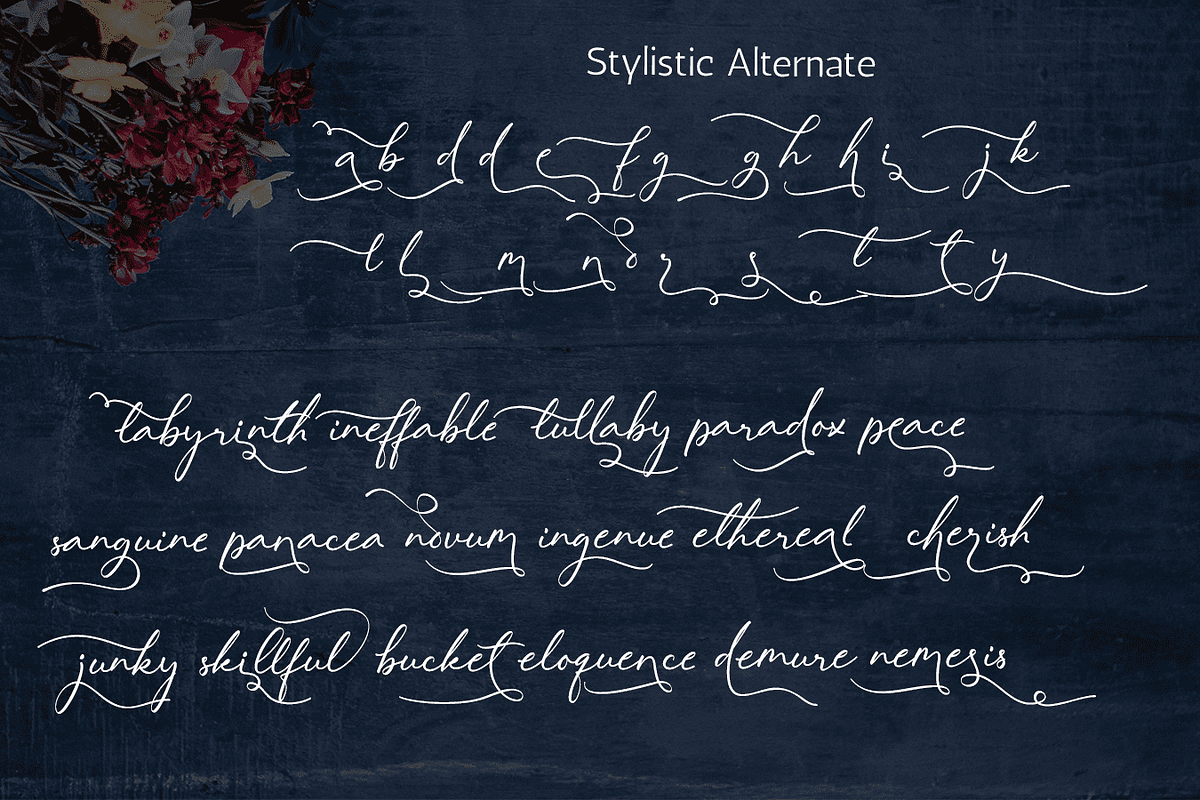 Stylistic Alternate
a b d d e f g g h h i j k
l l m n o r s t t y
labyrinth ineffable lullaby paradox peace
sanguine panacea novum ingenue ethereal cherish
junky skillful bucket eloquence demure nemesis